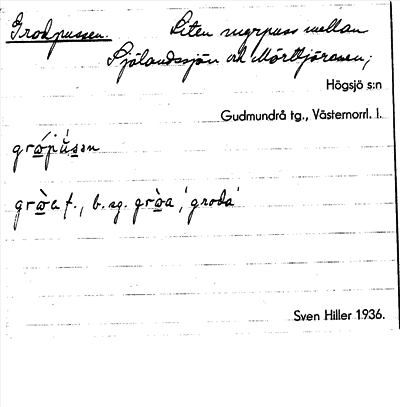 Grodpussen. Liten myrpuss mellan
Sjölandssjön och Mörttjärnen;
Högsjö s:n
Gudmundrå tg., Västernorrl. l.
f., b. sg. 'groda'
Sven Hiller 1936.